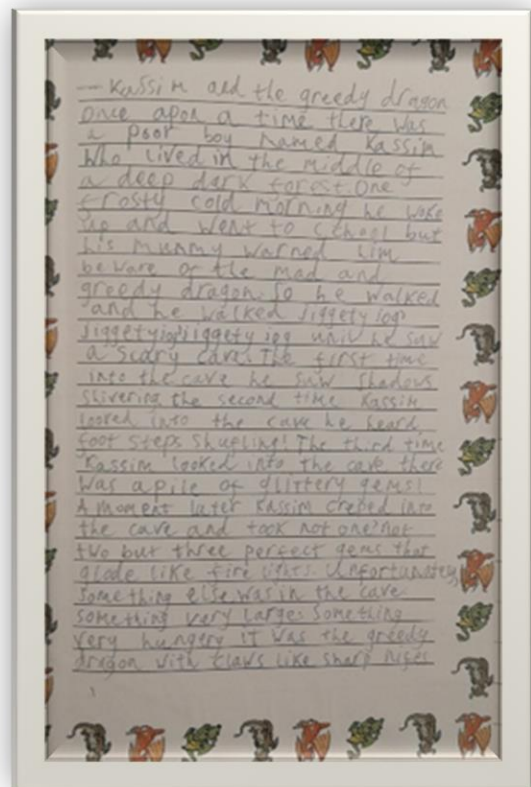 Kassim and the greedy dragon
Once apon a time there was
a poor boy named Kassim
who lived in the middle of
a deep dark forest. One
frosty cold morning he woke
up and went to school but
his mummy warned him
beware of the mad and
greedy dragon. So he walked
and he walked Jiggety jog
Jiggety jog Jiggety jog he saw
a scary cave. The first time
into the cave he saw shadows
shivering the second time Kassim
looked into the cave he heard
foot steps shufling! The third time
Kassim looked into the cave there
was a pile of glittery gems!
A moment later Kassim creped into
the cave and took not one! not
two but three perfect gems that
glode like fire lights. Unfortunately
something else was in the cave
something very large. Something
very hungery it was the greedy
dragon with claws like sharp